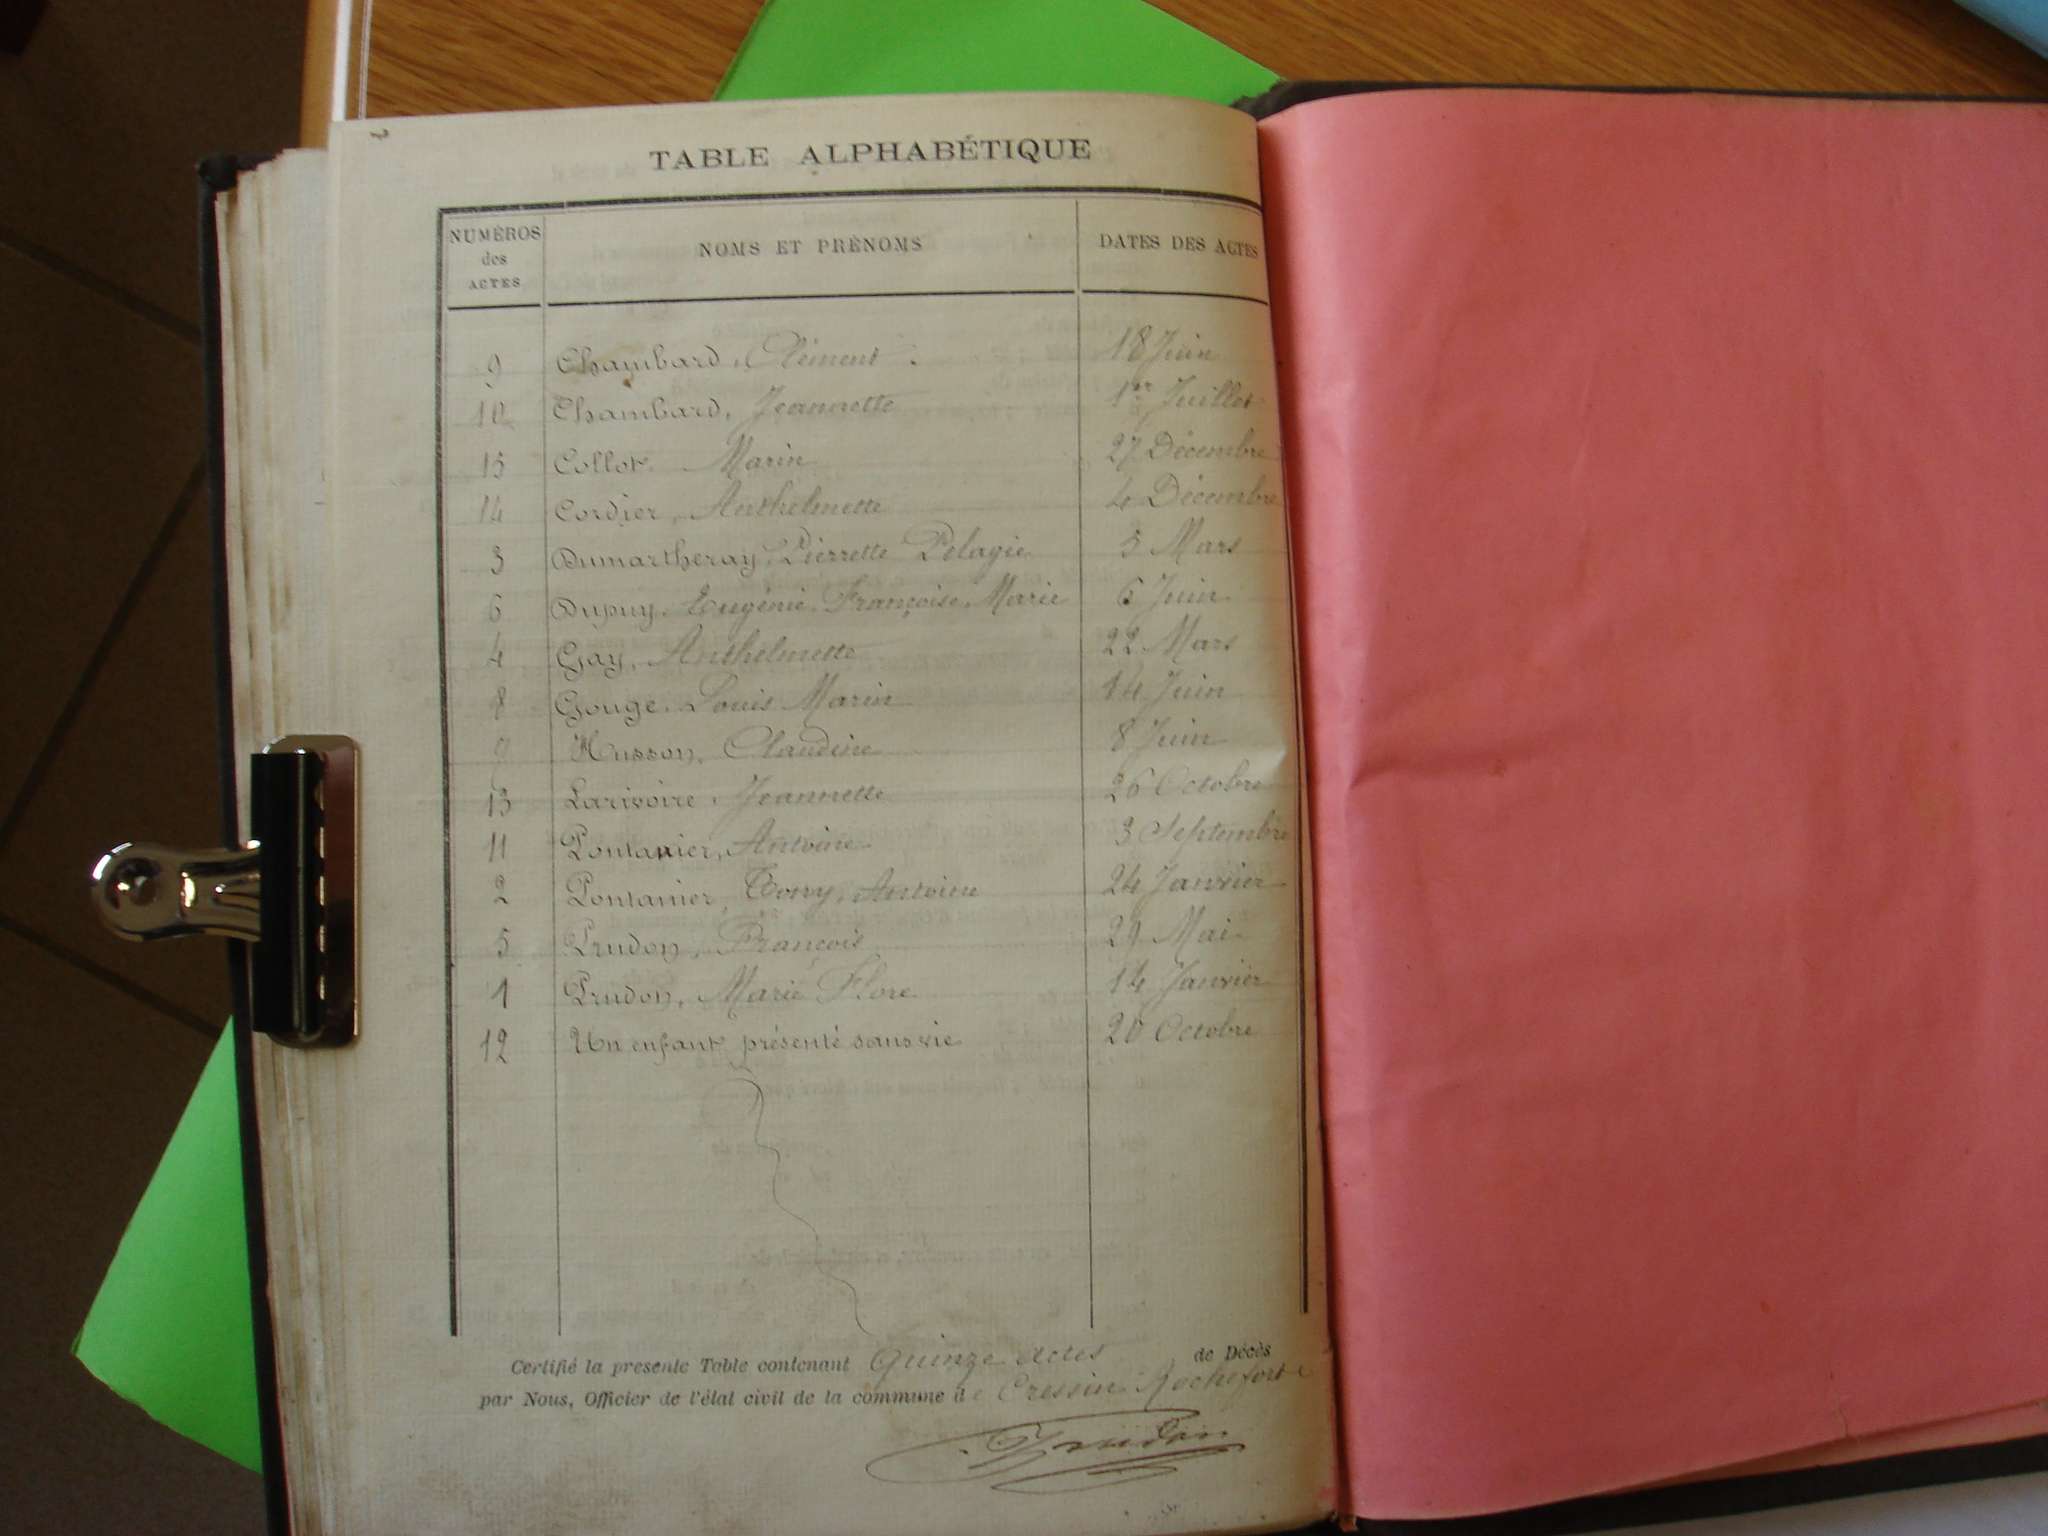 TABLE ALPHABÉTIQUE
NUMÉROS des ACTES NOMS ET PRÉNOMS DATES DES ACTES
9 Chambard, Clément. 18 Juin
10 Chambard, Jeannette 1er Juillet
15 Collot Marin 27 Décembre
14 Cordier, Anthelmette 4 Décembre
3 Dumartheray Pierrette Pelagie 5 Mars
6 Dupuy, Eugénie, Françoise, Marie 6 Juin
4 Gay, Anthelmette 22 Mars
8 Gouge, Louis Marin 14 Juin
Husson, Claudine 8 Juin
13 Larivoire, Jeannette 26 Octobre
11 Pontanier, Antoine 3 Septembre
2 Pontanier, Tony, Antoine 24 Janvier
5 Prudon, François 29 Mai
1 Prudon, Marie Flore 14 Janvier
12 Un enfant présenté sans vie 20 Octobre
Certifié la présente Table contenant Quinze actes de Décès
par Nous, Officier de l'état civil de la commune de Cressin Rochefort
Prudon